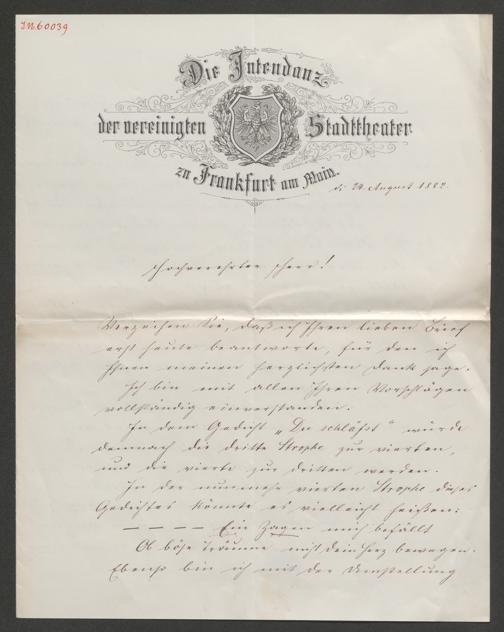 I.N. 60039
Die Intendanz
der vereinigten Stadttheater
zu Frankfurt am Main.
d. 24. August 1882.
Hochverehrter Herr!
Verzeihen Sie, daß ich Ihren lieben Brief
erst heute beantworte, für den ich
Ihnen meinen herzlichsten Dank sage.
Ich bin mit allen Ihren Vorschlägen
vollständig einverstanden.
In dem Gedicht „Du schläfst“ würde
demnach die dritte Strophe zur vierten,
und die vierte zur dritten werden.
In der nunmehr vierten Strophe dieses
Gedichtes könnte es vielleicht heißen:
— — — — Ein Zagen mich befällt
Ob böse Träume nicht dein Herz bewegen.
Ebenso bin ich mit der Umstellung